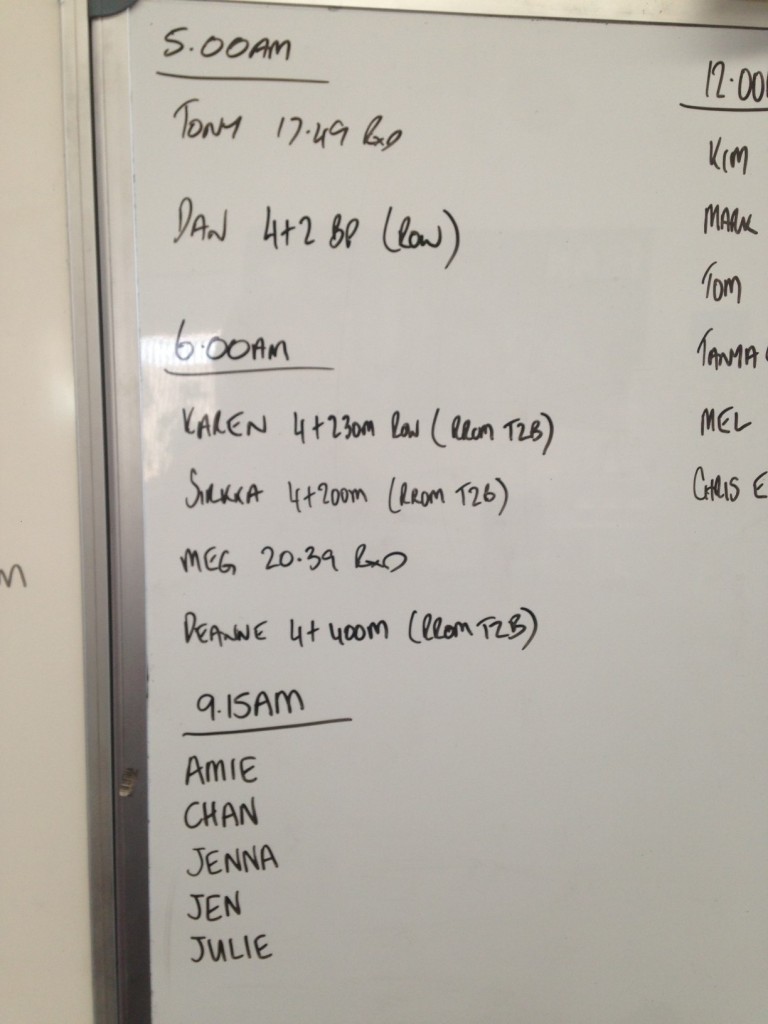 5.00AM
TONY 17.49 RxD
DAN 4+2 BP (ROW)
6.00AM
KAREN 4+230m ROW (RROM T2B)
SIRKKA 4+200m (RROM T2B)
MEG 20.39 RxD
DEANNE 4+400M (RROM T2B)
9.15AM
AMIE
CHAN
JENNA
JEN
JULIE
12.00
KIM
MARK
TOM
TANYA
MEL
CHRIS E
M